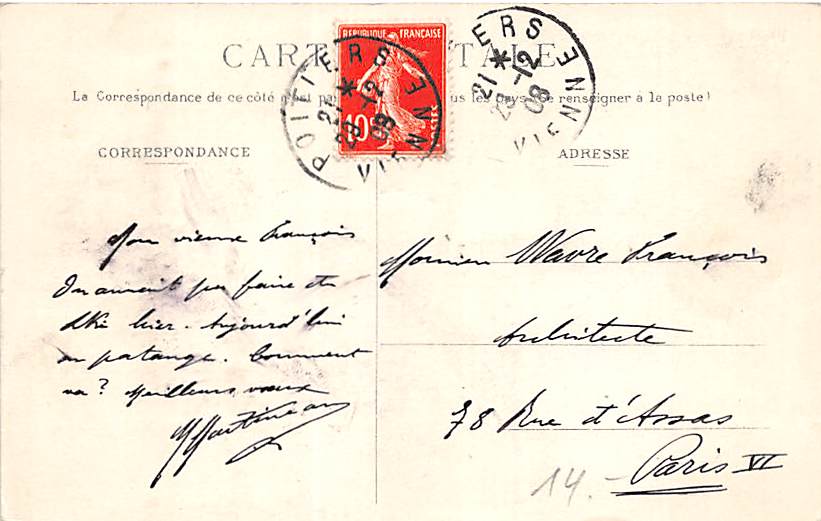 CARTE POSTALE
La Correspondance de ce côté n'est pas us les pays. Se renseigner à la poste)
REPUBLIQUE FRANÇAISE
10c
POITIERS
21 *
28-12
08
VIENNE
ERS
21 *
28-12
08
VIENNE
CORRESPONDANCE
Mon vieux François
On aurait pu faire du
ski hier. Aujourd'hui
on patauge. Comment
va? Meilleurs vœux
Martineau
ADRESSE
Monsieur Wavre François
Architecte
78 Rue d'Assas
Paris VI
14.-